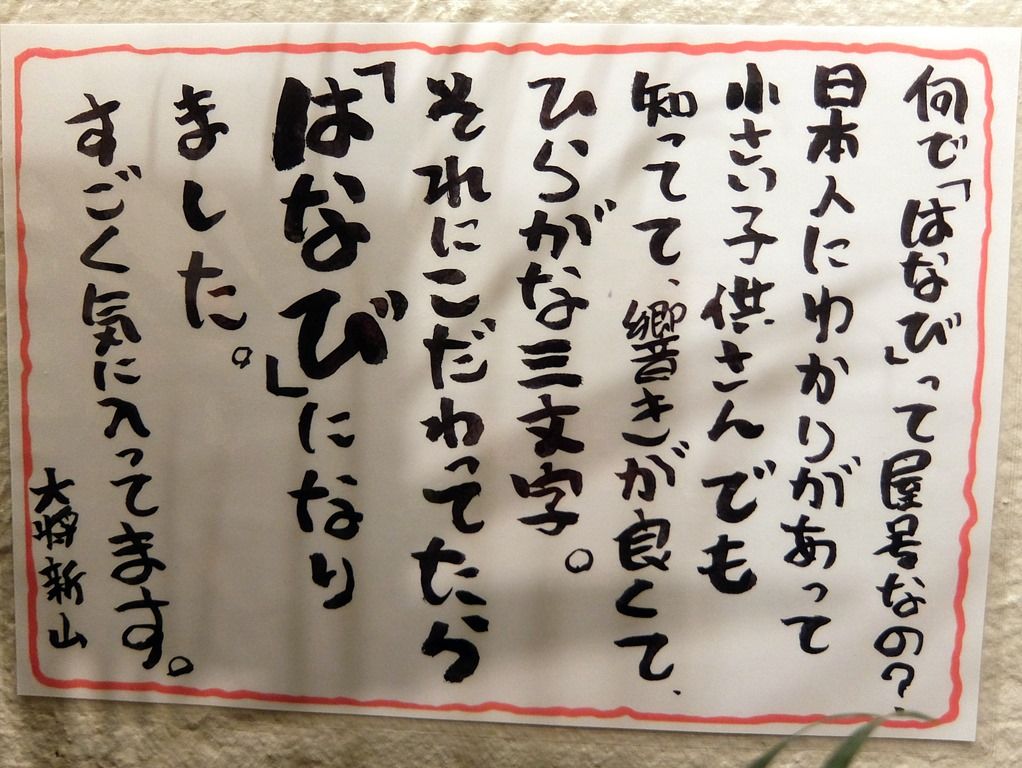 何で「はなび」って屋号なの?
日本人にゆかりがあって
小さい子供さんでも
知ってて、響きが良くて、
ひらがな三文字。
それにこだわってたら
「はなび」になり
ました。
すごく気に入ってます。
大将新山